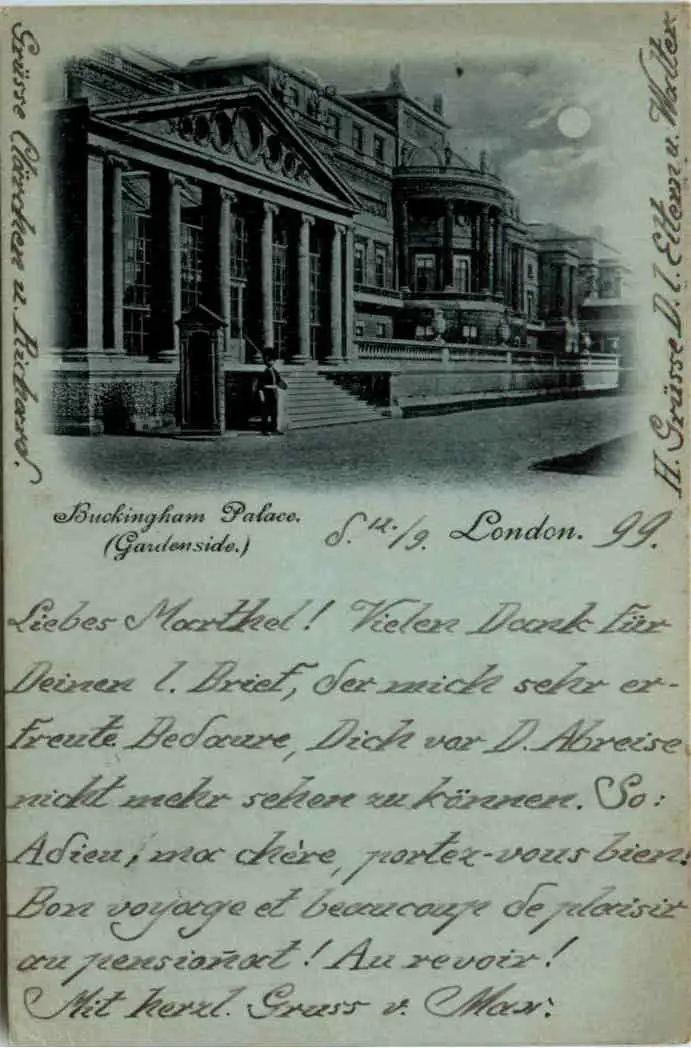 Grüsse Clärchen u. Richard.
H. Grüsse D. l. Eltern u. Walter
Buckingham Palace.
(Gardenside.)
d. 12./9. London. 99.
Liebes Marthel! Vielen Dank für
Deinen l. Brief, der mich sehr er-
freute. Bedaure, Dich vor D. Abreise
nicht mehr sehen zu können. So:
Adieu, ma chère, portez-vous bien!
Bon voyage et beaucoup de plaisir
au pensionat! Au revoir!
Mit herzl. Gruss v. Max.